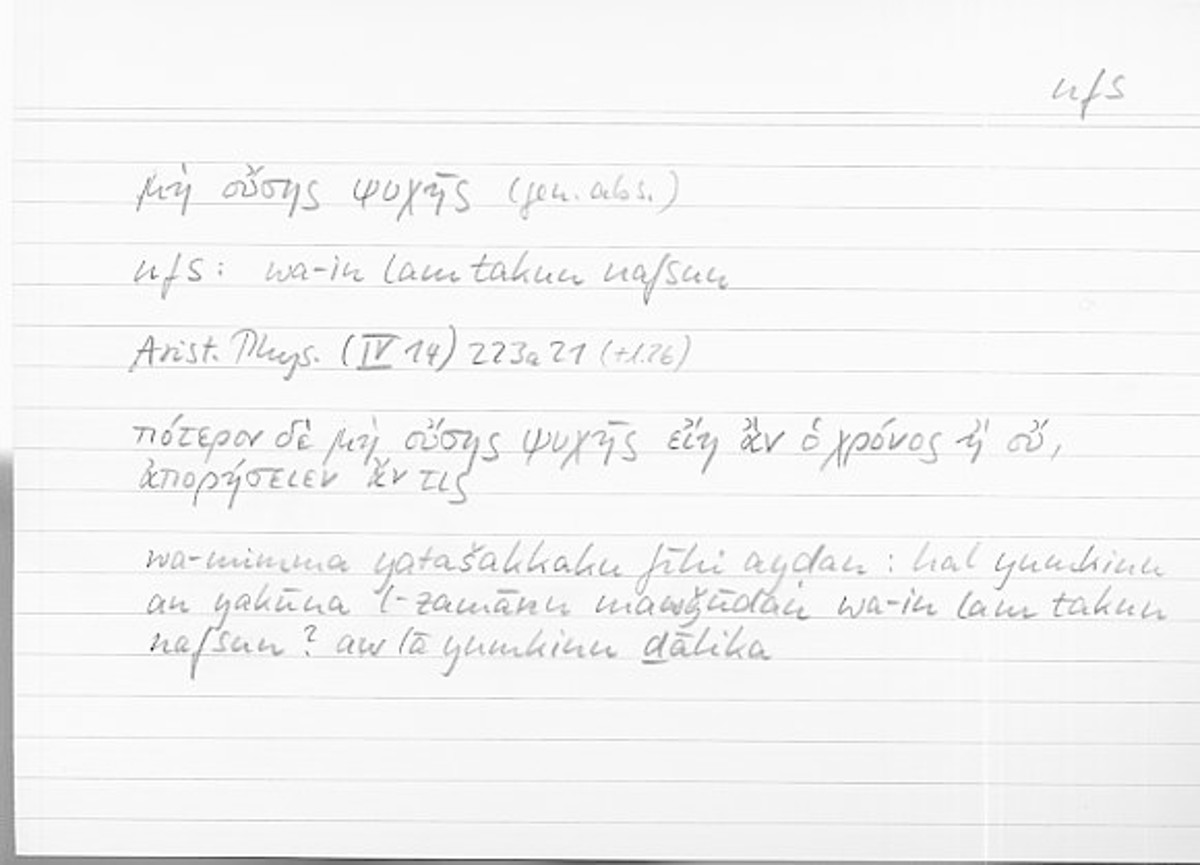 nfs
μὴ οὔσης ψυχῆς (gen. abs.)
nfs: wa-in lam takun nafsun
Arist. Phys. (IV 14) 223a21 (+l.26)
πότερον δὲ μὴ οὔσης ψυχῆς εἴη ἂν ὁ χρόνος ἢ οὔ,
ἀπορήσειεν ἄν τις
wa-mimma yatašakkaku fīhi aydan: hal yumkinu
an yakūna l-zamānu mawǧūdan wa-in lam takun
nafsun? aw lā yumkinu ḏālika